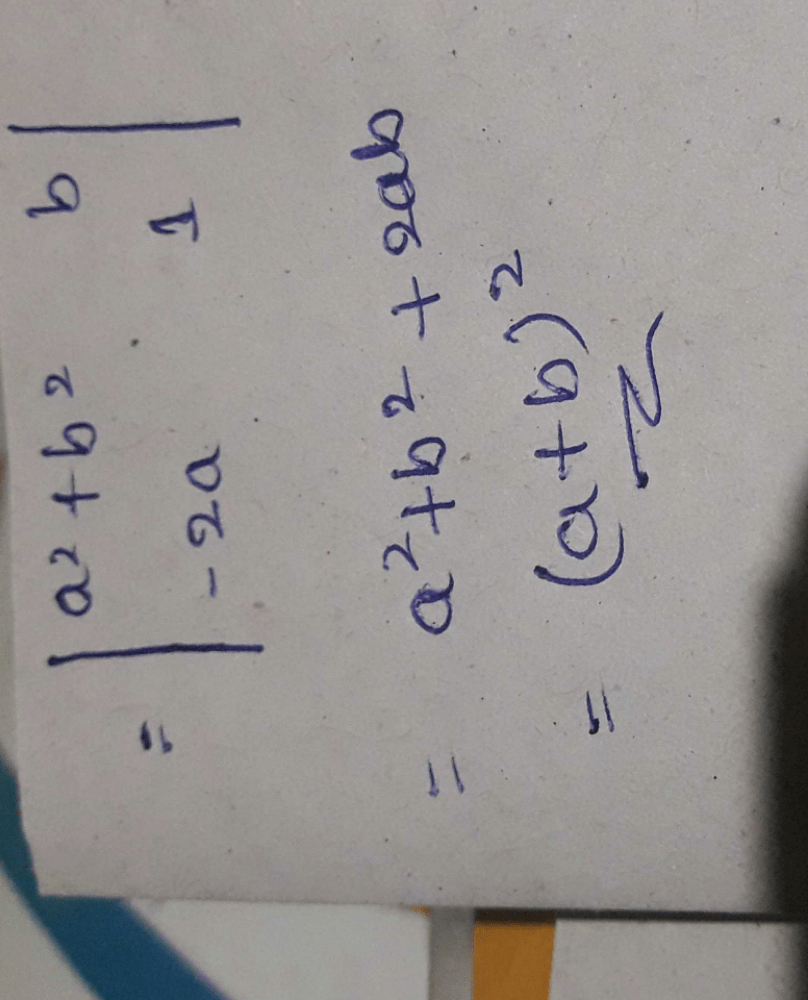 = | a² + b² b |
| - 2a 1 |
= a² + b² + 2ab
= (a + b)²